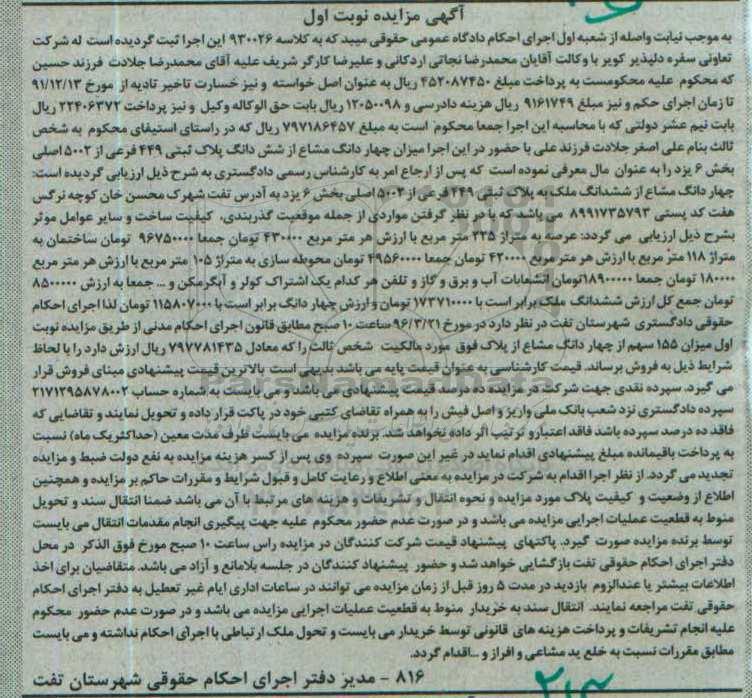 آگهی مزایده نوبت اول
به موجب نیابت واصله از شعبه اول اجرای احکام دادگاه عمومی حقوقی میبد که به کلاسه ۹۳۰۰۲۶ این اجرا ثبت گردیده است له شرکت
تعاونی سفره دلپذیر کویر با وکالت آقایان محمدرضا نجاتی اردکانی و علیرضا کارگر شریف علیه آقای محمدرضا جلادت فرزند حسین
که محکوم علیه محکومست به پرداخت مبلغ ۴۵۲۰۸۷۴۵۰ ریال به عنوان اصل خواسته و نیز خسارت تاخیر تادیه از مورخ ۹۱/۱۲/۱۳
تا زمان اجرای حکم و نیز مبلغ ۹۱۶۱۷۴۹ ریال هزینه دادرسی و ۱۲۰۵۰۰۹۸ ریال بابت حق الوکاله وکیل و نیز پرداخت ۲۲۴۰۶۳۷۲ ریال
بابت نیم عشر دولتی که با محاسبه این اجرا جمعا محکوم است به مبلغ ۷۹۷۱۸۶۴۵۷ ریال که در راستای استیفای محکوم به شخص
ثالث بنام علی اصغر جلادت فرزند علی با حضور در این اجرا میزان چهار دانگ مشاع از شش دانگ پلاک ثبتی ۴۴۹ فرعی از ۵۰۰۲ اصلی
بخش ۶ یزد را به عنوان مال معرفی نموده است که پس از ارجاع امر به کارشناس رسمی دادگستری به شرح ذیل ارزیابی گردیده است:
چهار دانگ مشاع از ششدانگ ملک به پلاک ثبتی ۴۴۹ فرعی از ۵۰۰۲ اصلی بخش ۶ یزد به آدرس تفت شهرک محسن خان کوچه نرگس
هفت کد پستی ۸۹۹۱۷۳۵۷۹۳ می باشد که با در نظر گرفتن مواردی از جمله موقعیت گذربندی، کیفیت ساخت و سایر عوامل موثر
بشرح ذیل ارزیابی می گردد: عرصه به متراژ ۲۲۵ متر مربع با ارزش هر متر مربع ۴۳۰۰۰۰ تومان جمعا ۹۶۷۵۰۰۰۰ تومان ساختمان به
متراژ ۱۱۸ متر مربع با ارزش هر متر مربع ۴۲۰۰۰۰ تومان جمعا ۴۹۵۶۰۰۰۰ تومان محوطه سازی به متراژ ۱۰۵ متر مربع با ارزش هر متر مربع
۱۸۰۰۰۰ تومان جمعا ۱۸۹۰۰۰۰۰تومان انشعابات آب و برق و گاز و تلفن هر کدام یک اشتراک کولر و آبگرمکن و ... جمعا به ارزش ۸۵۰۰۰۰۰
تومان جمع کل ارزش ششدانگ ملک برابر است با ۱۷۳۷۱۰۰۰۰ تومان و ارزش چهار دانگ برابر است با ۱۱۵۸۰۷۰۰۰ تومان لذا اجرای احکام
حقوقی دادگستری شهرستان تفت در نظر دارد در مورخ ۹۶/۳/۲۱ ساعت ۱۰ صبح مطابق قانون اجرای احکام مدنی از طریق مزایده نوبت
اول میزان ۱۵۵ سهم از چهار دانگ مشاع از پلاک فوق مورد مالکیت شخص ثالث را که معادل ۷۹۷۷۸۱۴۳۵ ریال ارزش دارد را با لحاظ
شرایط ذیل به فروش برساند. قیمت کارشناسی به عنوان قیمت پایه می باشد بدیهی است بالاترین قیمت پیشنهادی مبنای فروش قرار
می گیرد. سپرده نقدی جهت شرکت در مزایده ده درصد قیمت پیشنهادی می باشد و می بایست به شماره حساب ۲۱۷۱۲۹۵۸۷۸۰۰۲
سپرده دادگستری نزد شعب بانک ملی واریز و اصل فیش را به همراه تقاضای کتبی خود در پاکت قرار داده و تحویل نمایند و تقاضایی که
فاقد ده درصد سپرده باشد فاقد اعتبار و ترتیب اثر داده نخواهد شد. برنده مزایده می بایست ظرف مدت معین (حداکثریک ماه) نسبت
به پرداخت باقیمانده مبلغ پیشنهادی اقدام نماید در غیر این صورت سپرده وی پس از کسر هزینه مزایده به نفع دولت ضبط و مزایده
تجدید می گردد. از نظر اجرا اقدام به شرکت در مزایده به معنی اطلاع و رعایت کامل و قبول شرایط و مقررات حاکم بر مزایده و همچنین
اطلاع از وضعیت و کیفیت پلاک مورد مزایده و نحوه انتقال و تشریفات و هزینه های مرتبط با آن می باشد ضمنا انتقال سند و تحویل
منوط به قطعیت عملیات اجرایی مزایده می باشد و در صورت عدم حضور محکوم علیه جهت پیگیری انجام مقدمات انتقال می بایست
توسط برنده مزایده صورت گیرد. پاکتهای پیشنهاد قیمت شرکت کنندگان در مزایده راس ساعت ۱۰ صبح مورخ فوق الذکر در محل
دفتر اجرای احکام حقوقی تفت بازگشایی خواهد شد و حضور پیشنهاد کنندگان در جلسه بلامانع و آزاد می باشد. متقاضیان برای اخذ
اطلاعات بیشتر یا عندالزوم بازدید در مدت ۵ روز قبل از زمان مزایده می توانند در ساعات اداری ایام غیر تعطیل به دفتر اجرای احکام
حقوقی تفت مراجعه نمایند. انتقال سند به خریدار منوط به قطعیت عملیات اجرایی مزایده می باشد و در صورت عدم حضور محکوم
علیه انجام تشریفات و پرداخت هزینه های قانونی توسط خریدار می بایست و تحول ملک ارتباطی با اجرای احکام نداشته و می بایست
مطابق مقررات نسبت به خلع ید مشاعی و افراز و ...اقدام گردد.
۸۱۶ - مدیر دفتر اجرای احکام حقوقی شهرستان تفت